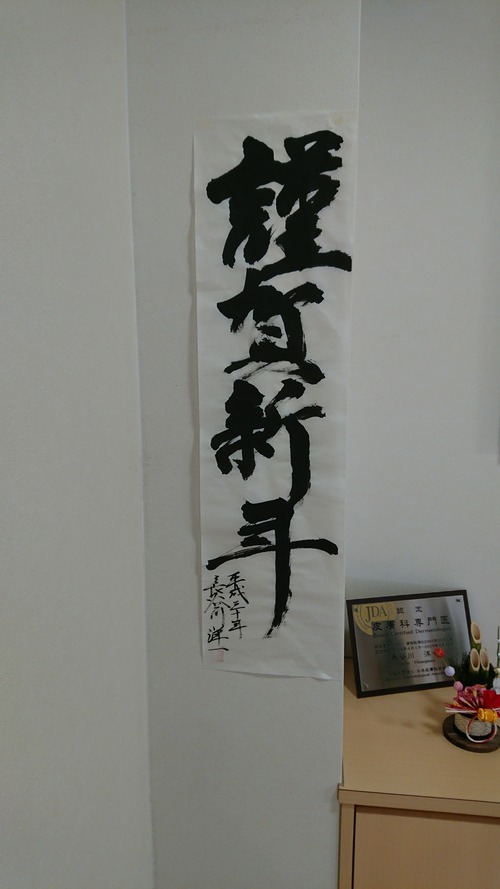 謹賀新年
平成三十年
長谷川洋一
JDA
認定
皮膚科専門医
Certified Dermatologist
長谷川 洋一